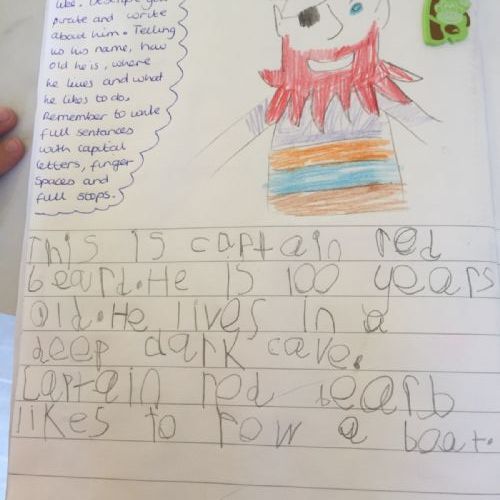 like. Describe your
pirate and write
about him. Telling
us his name, how
old he is, where
he lives and what
he likes to do.
Remember to write
full sentances
with capital
letters, finger
spaces and
full stops.
This is captain red
beard. He is 100 years
old. He lives in a
deep dark cave.
Captain red bearb
likes to row a boat.